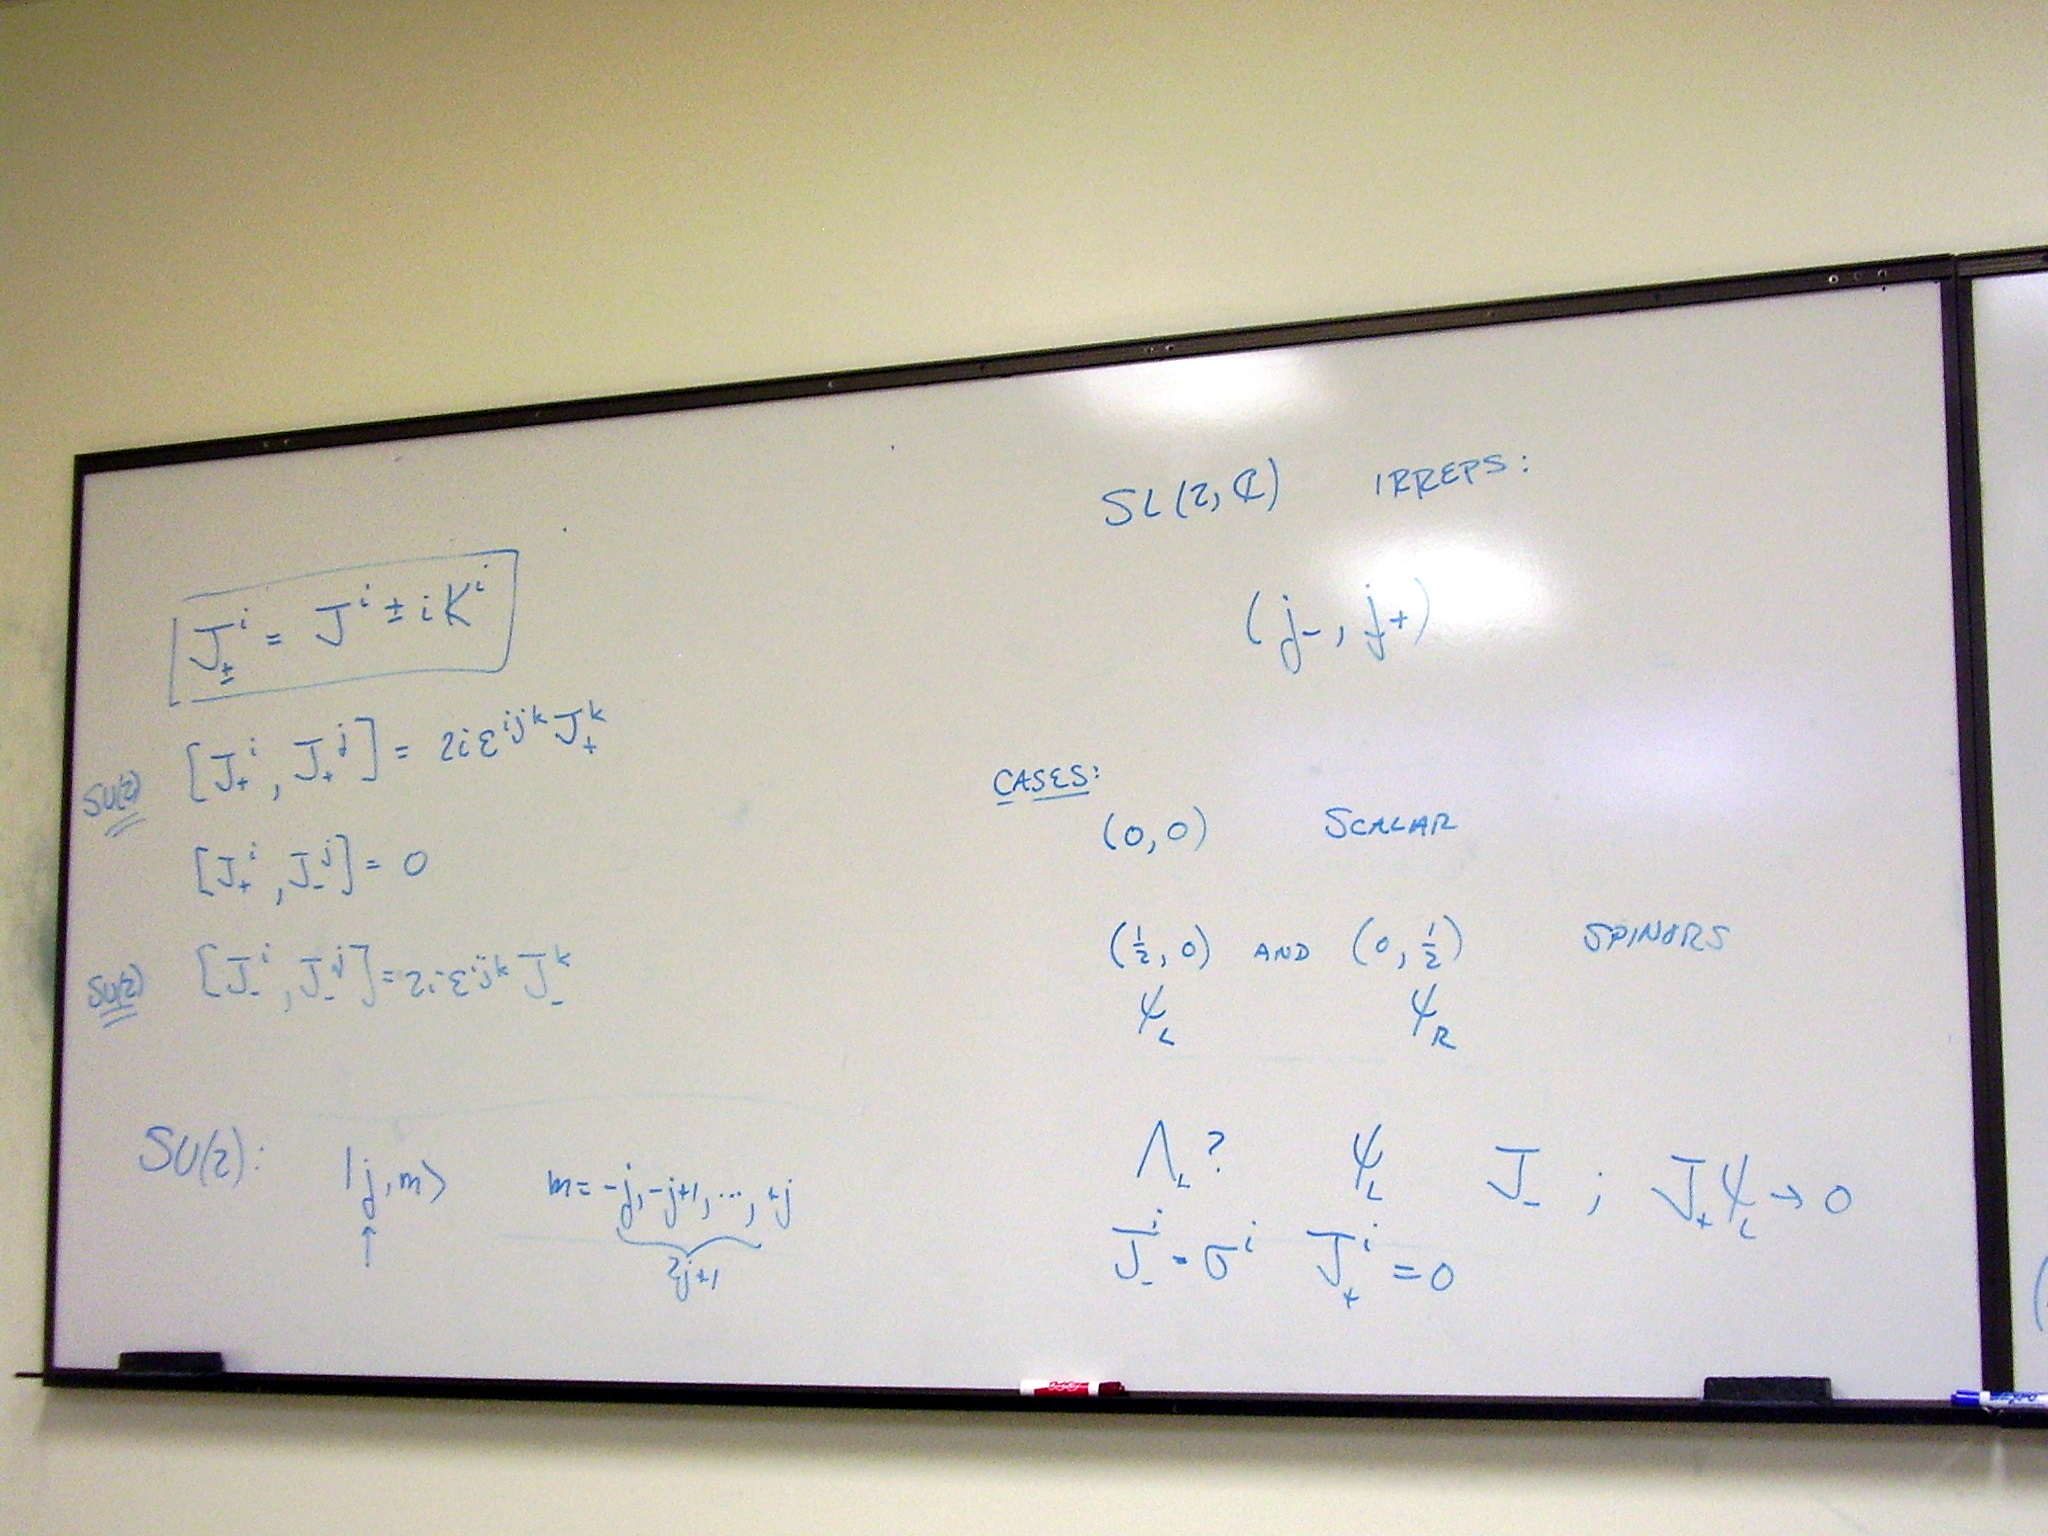 J±ⁱ = Jⁱ ± i Kⁱ
SU(2) [J₊ⁱ, J₊ʲ] = 2iε^{ijk} J₊ᵏ
[J₊ⁱ, J₋ʲ] = 0
SU(2) [J₋ⁱ, J₋ʲ] = 2iε^{ijk} J₋ᵏ
SU(2): |j, m⟩ m = -j, -j+1, ..., +j
↑ 2j+1
SL(2, ℂ) IRREPS:
(j₋, j₊)
CASES:
(0, 0) SCALAR
(1/2, 0) AND (0, 1/2) SPINORS
ψ_L ψ_R
Λ_L? ψ_L J₋ ; J₊ψ_L → 0
J₋ⁱ = σⁱ J₊ⁱ = 0